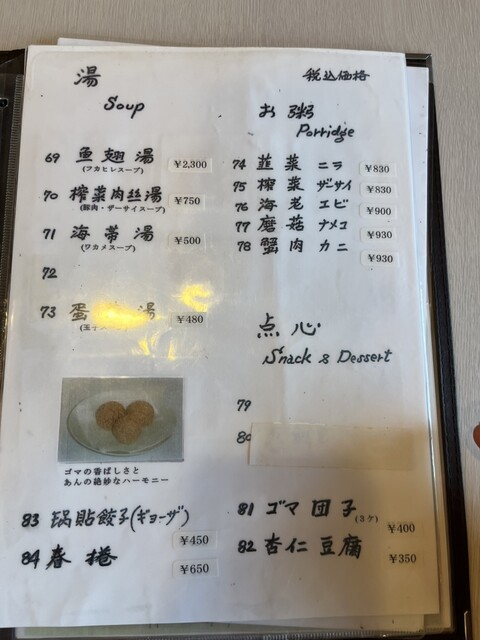 湯
Soup
69 魚翅湯 ¥2,300
(フカヒレスープ)
70 榨菜肉丝湯 ¥750
(豚肉・ザーサイスープ)
71 海帯湯 ¥500
(ワカメスープ)
72
73 蛋 湯 ¥480
(玉子
ゴマの香ばしさと
あんの絶妙なハーモニー
83 锅貼餃子(ギョーザ)
¥450
84 春捲
¥650
税込価格
お粥
Porridge
74 韮菜 ニラ ¥830
75 榨菜 ザーサイ ¥830
76 海老 エビ ¥900
77 蘑菇 ナメコ ¥930
78 蟹肉 カニ ¥930
点心
Snack & Dessert
79
80
81 ゴマ団子(3ケ)
¥400
82 杏仁豆腐 ¥350